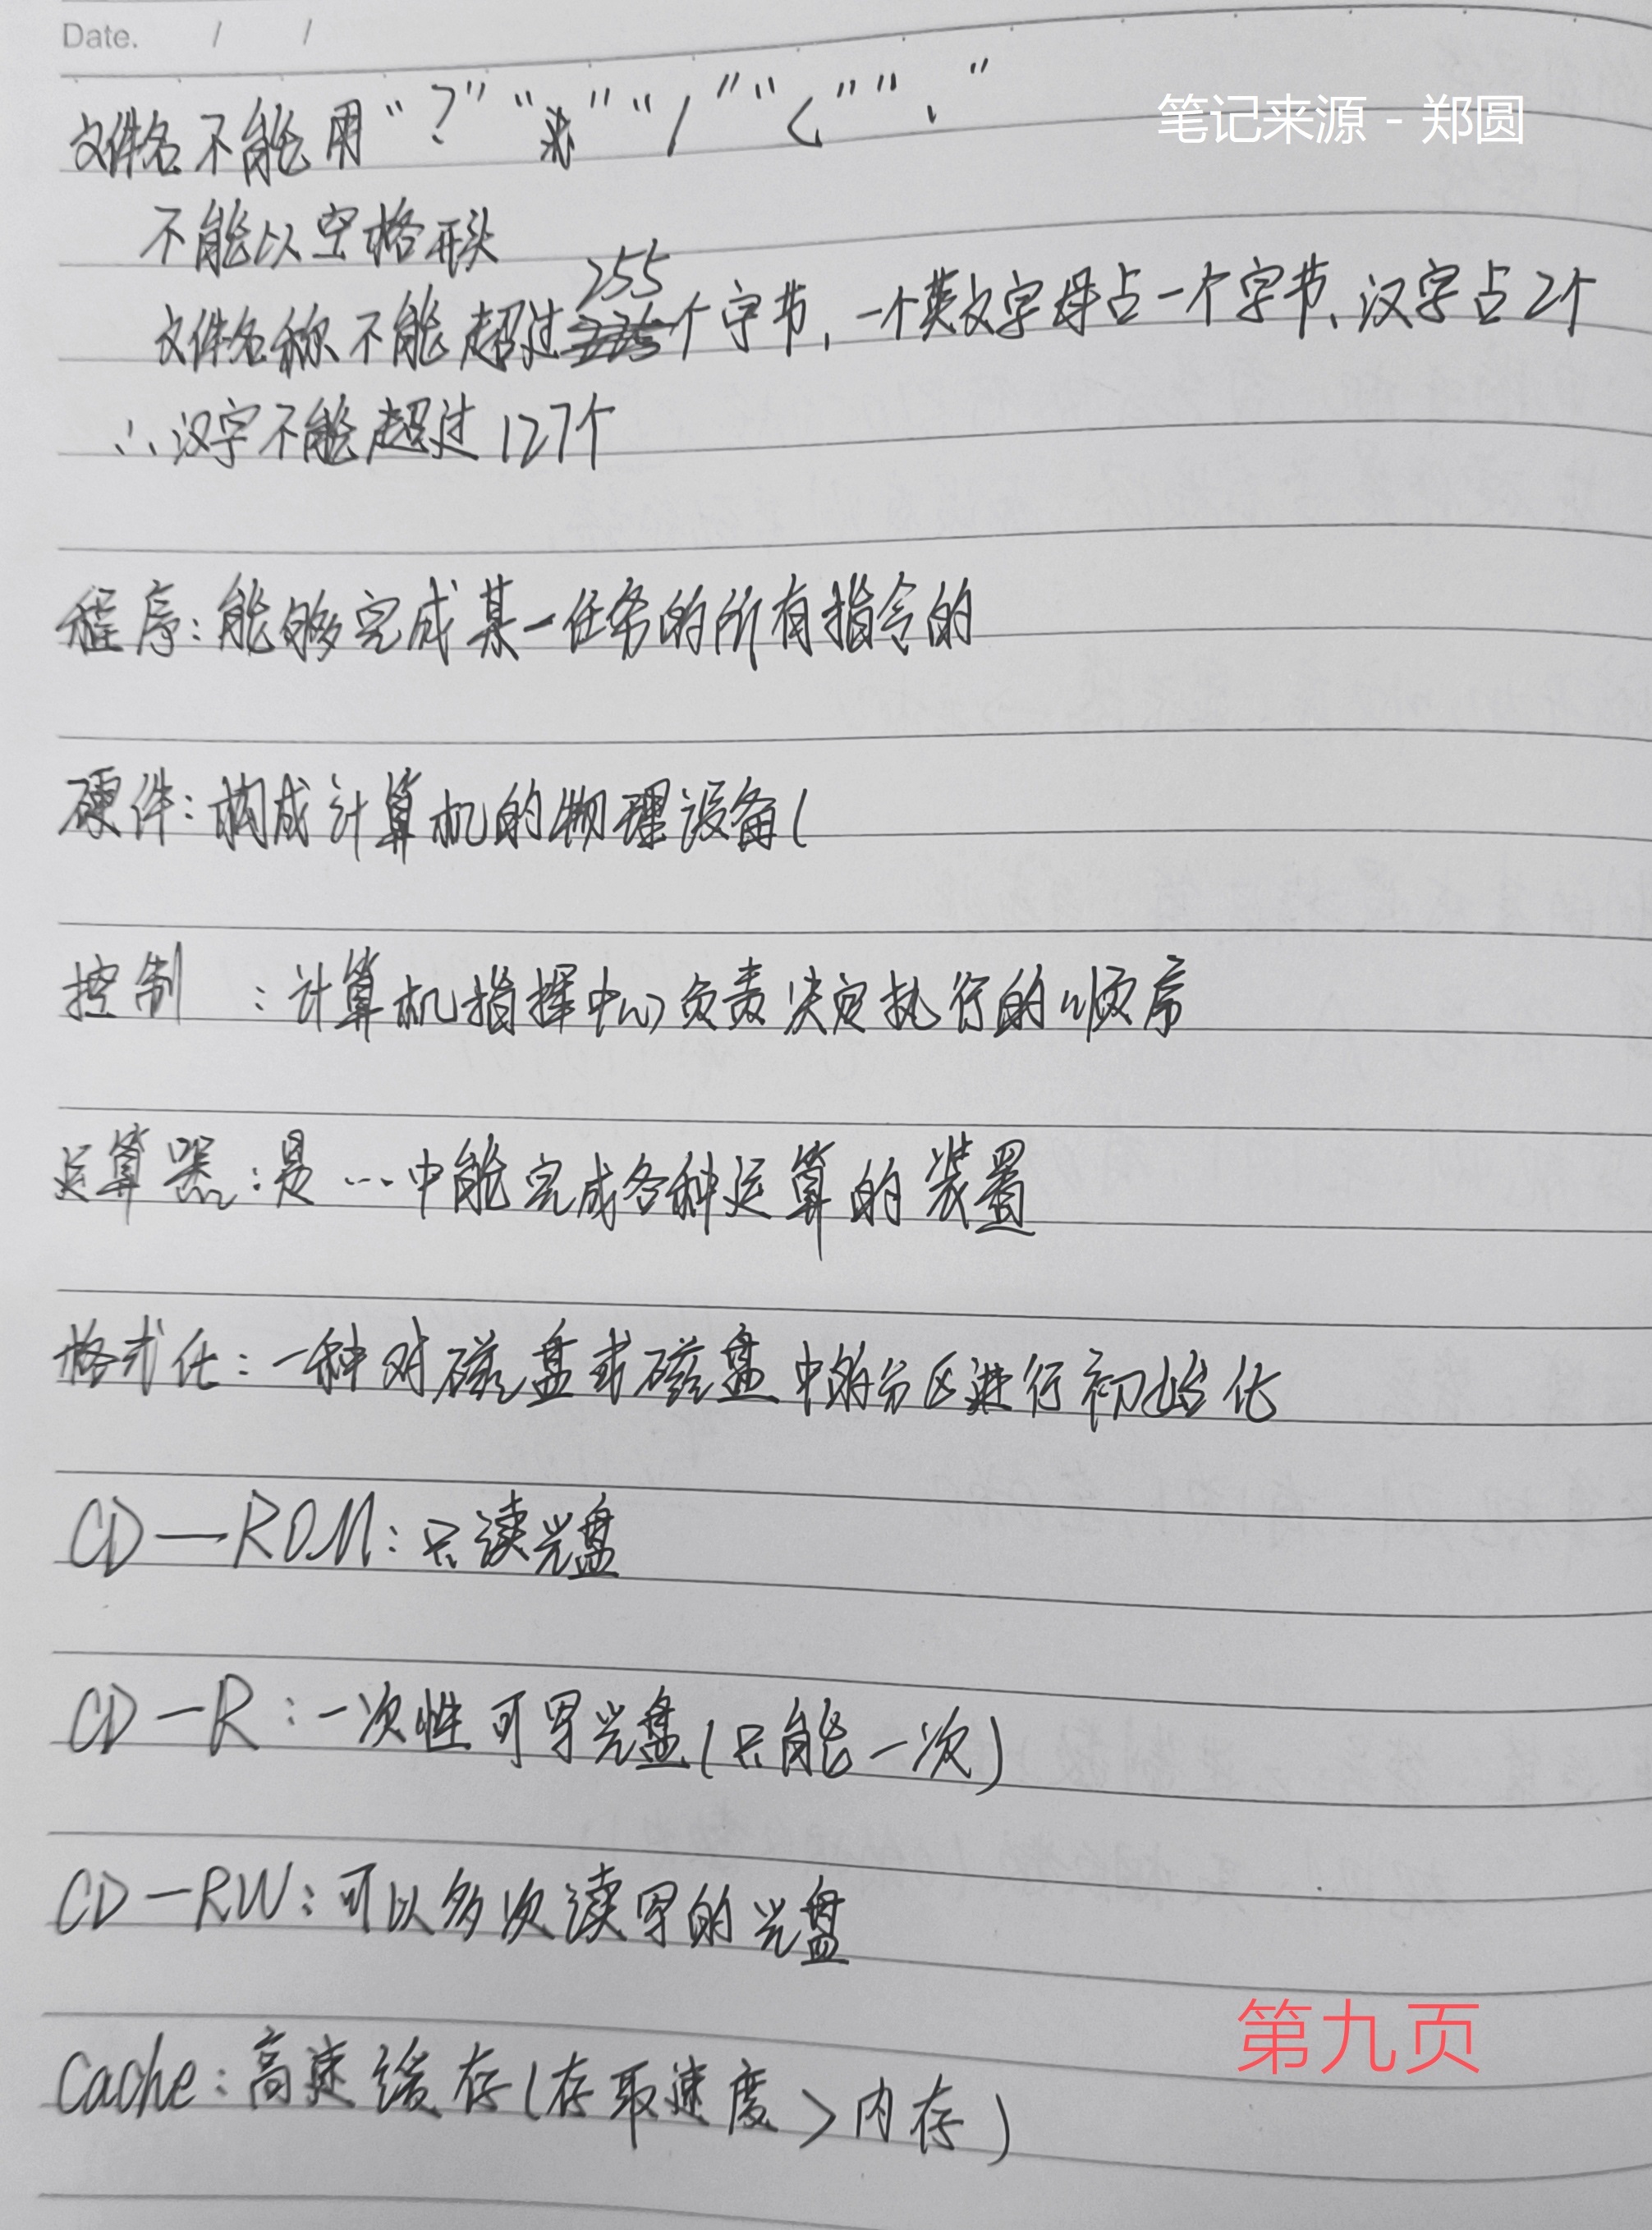 Date. / /
笔记来源 - 郑圆
文件名不能用“?”“*”“/”“<”“.”
不能以空格形头
文件名称不能超过255个字节,一个英文字母占一个字节、汉字占2个
∴汉字不能超过127个
程序:能够完成某一任务的所有指令的
硬件:构成计算机的物理设备(
控制 :计算机指挥中心负责决定执行的顺序
运算器:是…中能完成各种运算的装置
格式化:一种对磁盘或磁盘中的分区进行初始化
CD—ROM:只读光盘
CD—R:一次性可写光盘(只能一次)
CD—RW:可以多次读写的光盘
第九页
Cache:高速缓存(存取速度>内存)